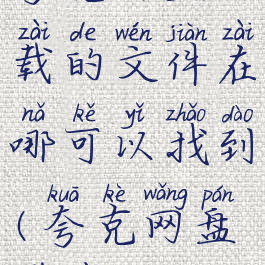 zài de wén jiàn zài
载的文件在
nǎ kě yǐ zhǎo dào
哪可以找到
kuā kè wǎng pán
(夸克网盘